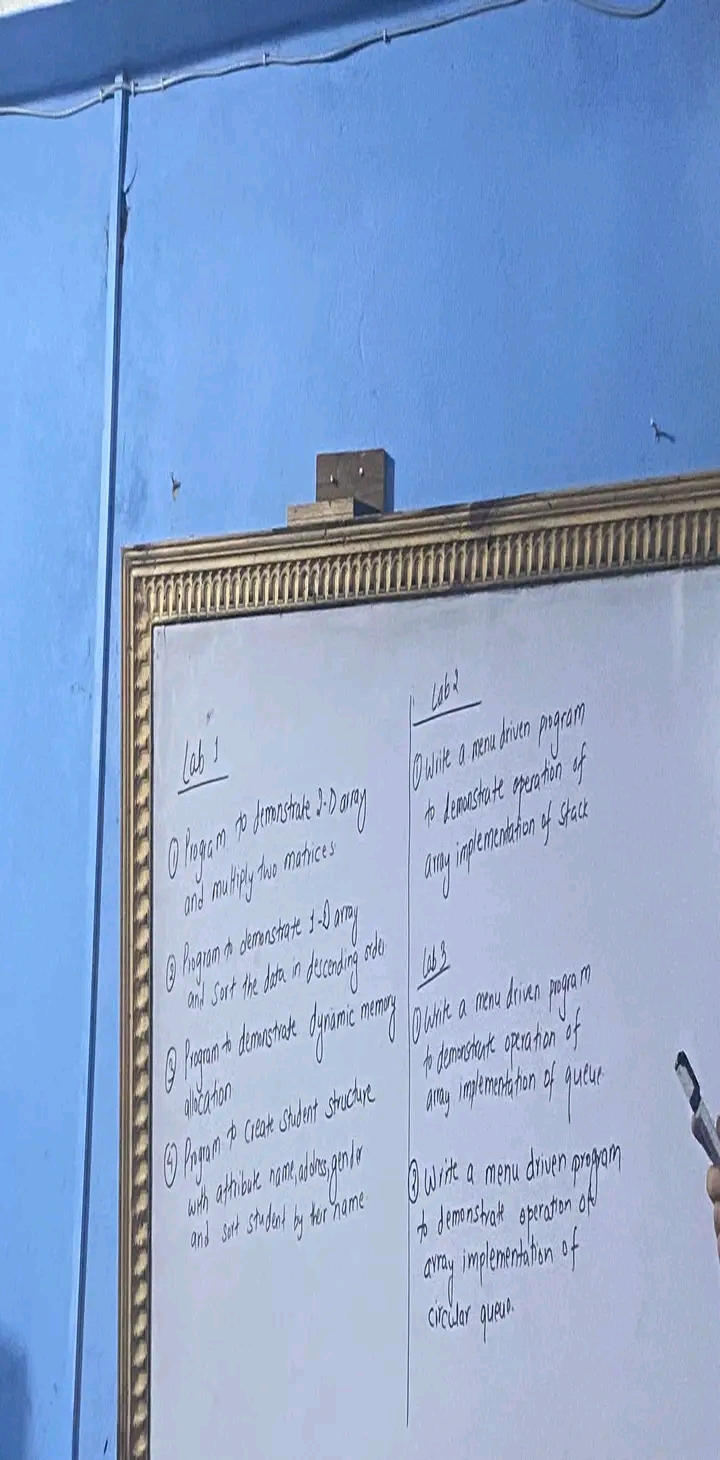 Lab 1
① Program to demonstrate 2-D array
and multiply two matrices
② Program to demonstrate 1-D array
and sort the data in descending order
③ Program to demonstrate dynamic memory
allocation
④ Program to create student structure
with attribute name, address, gender
and sort student by their name
Lab 2
① Write a menu driven program
to demonstrate operation of
array implementation of stack
Lab 3
① Write a menu driven program
to demonstrate operation of
array implementation of queue
② Write a menu driven program
to demonstrate operation of
array implementation of
circular queue.